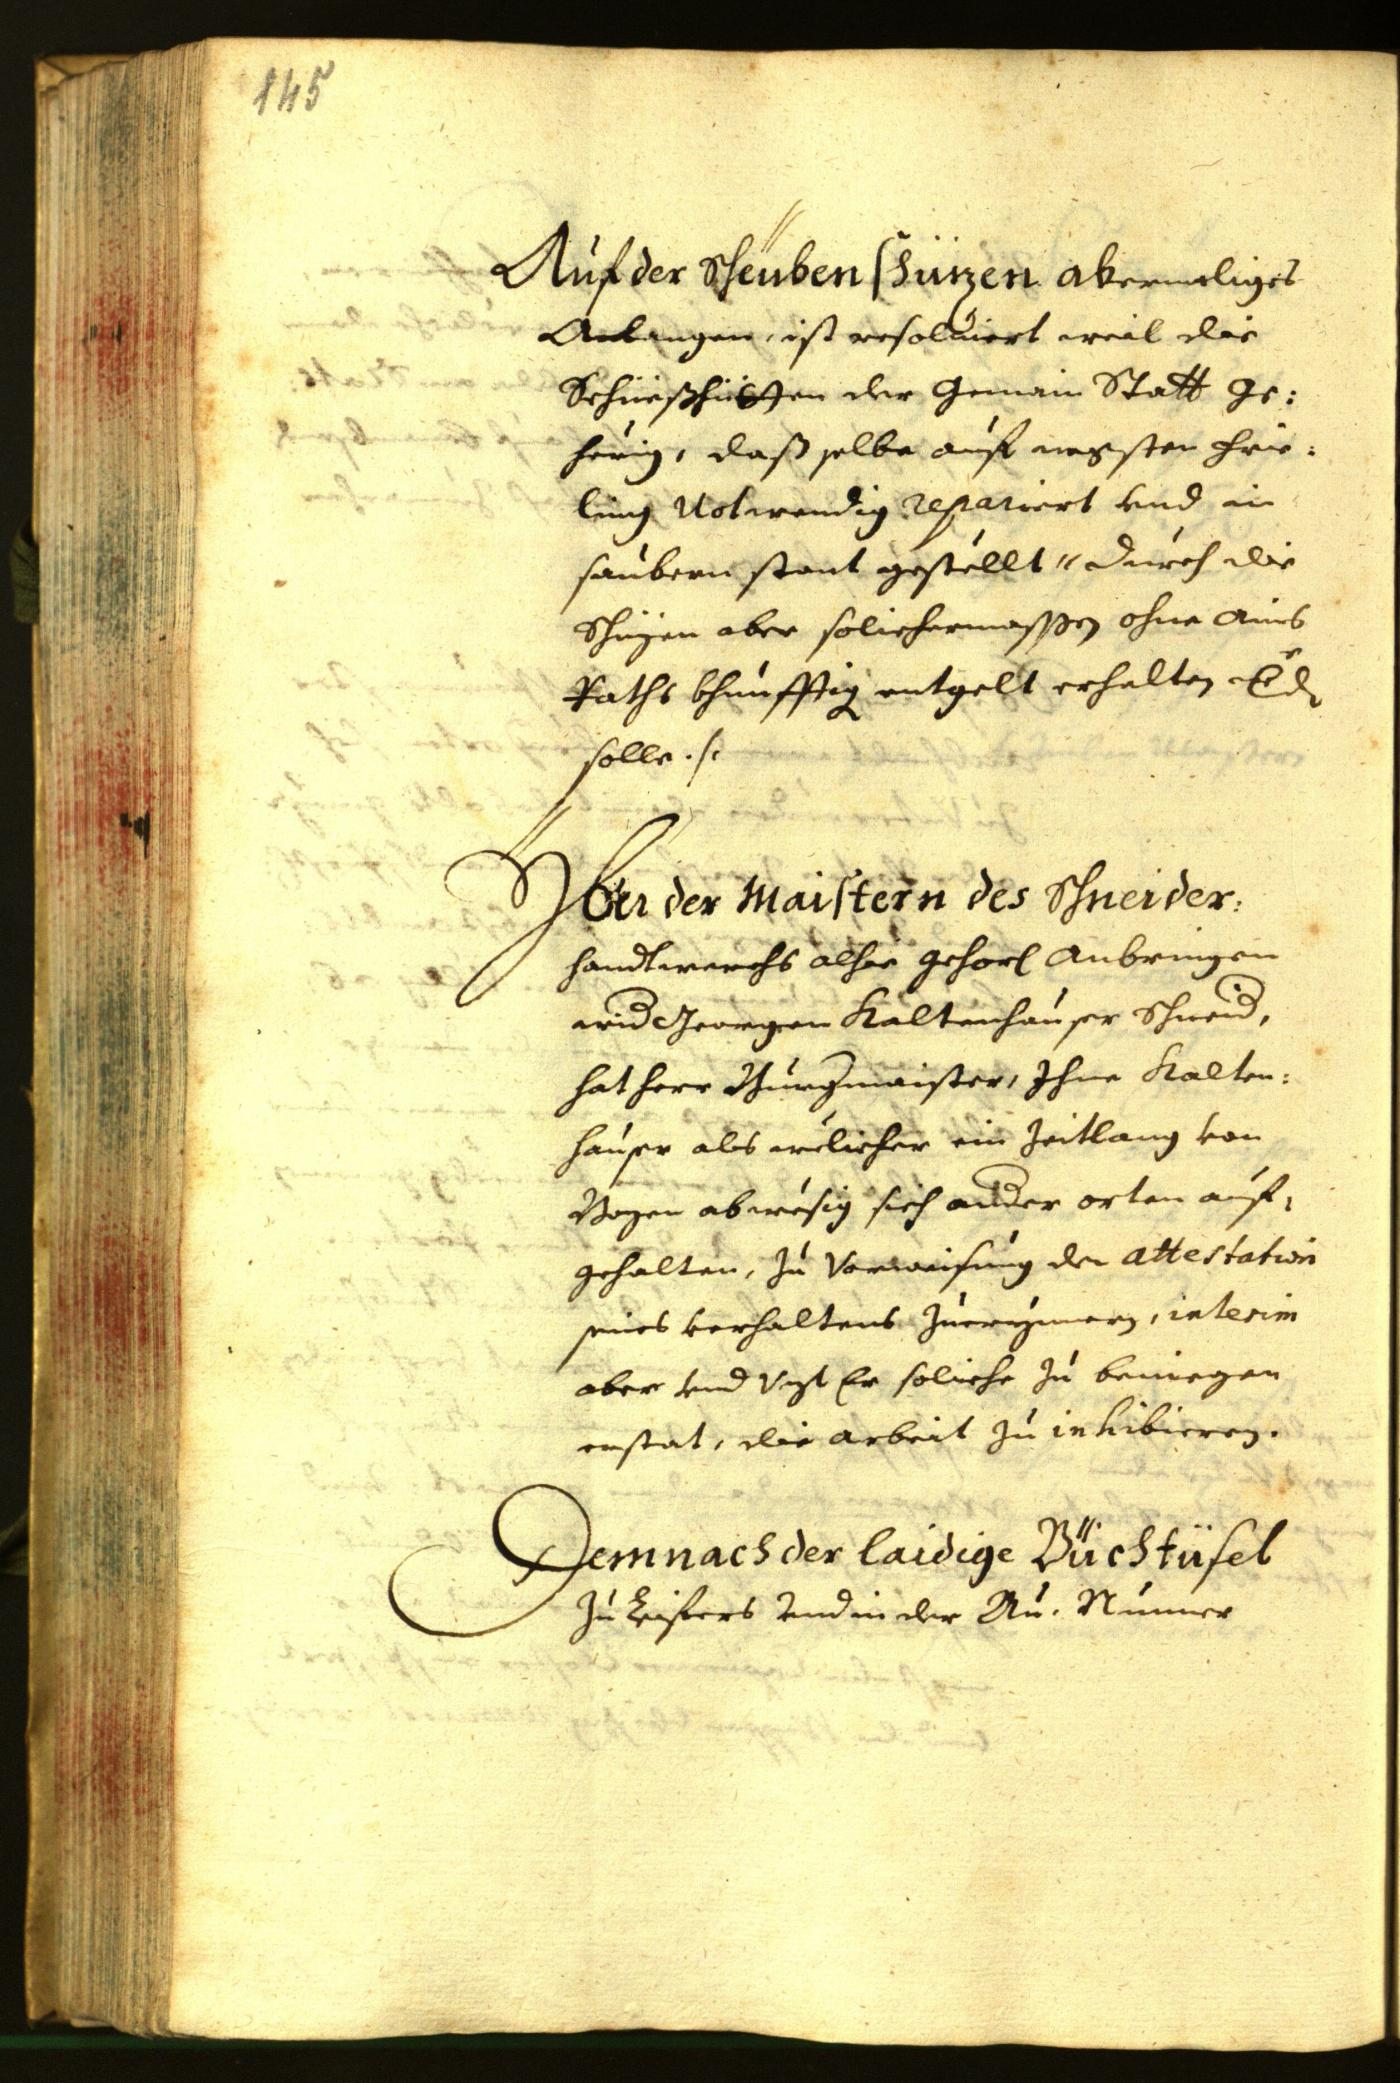 145
Auf der Scheubenschüzen abermaliges
Anlangen, ist resolviert weil die
Schüeßhütten der Gemain Statt ge:
hörig, daß selbe auf negsten Früe:
ling Notwendig repariert vnd in
saubern stant gestellt durch die
Schüzen aber solichermassen ohne Ains
Raths khünfftig entgelt erhalten
solle ./.
Yber der Maistern des Schneider:
handtwerchs alhie gehort Anbringen
wider Georgen Kaltenhauser Schneid,
hat herr Burgmaister, Ihne Kalten:
hauser als welicher ein Zeitlang von
Bozen abwesig sich ander orten auf:
gehalten, zu Vorweisung der attestation
seines verhaltens interim
aber vnd Er soliche zu
die arbeit zu inhibieren.
Demnach der laidige
Zu Leifers vnd in der Au.